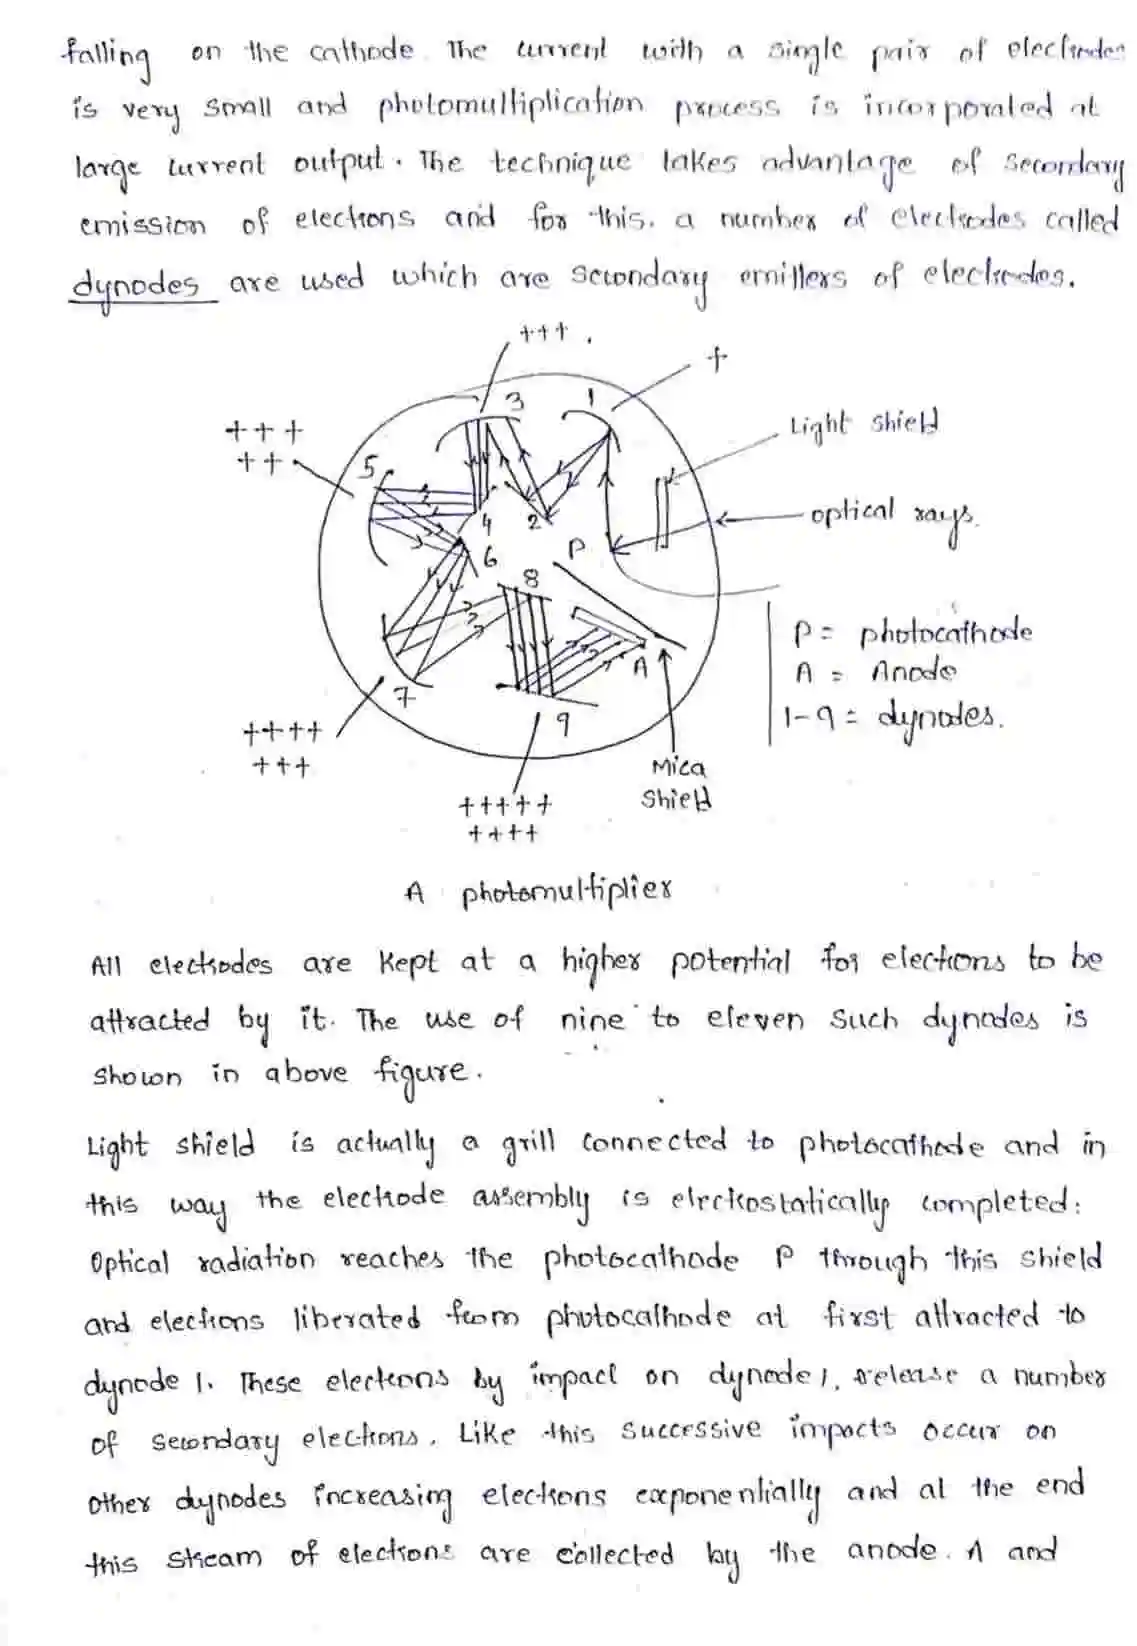 falling on the cathode. The current with a single pair of electrodes
is very small and photomultiplication process is incorporated at
large current output. The technique takes advantage of secondary
emission of electrons and for this, a number of electrodes called
dynodes are used which are secondary emitters of electrodes.
+++
+
+++
++
3
1
Light shield
5
optical rays.
4
2
P
6
8
P = photocathode
A = Anode
1-9 = dynodes.
A
7
9
++++
+++
Mica
Shield
+++++
++++
A photomultiplier
All electrodes are kept at a higher potential for electrons to be
attracted by it. The use of nine to eleven such dynodes is
shown in above figure.
Light shield is actually a grill connected to photocathode and in
this way the electrode assembly is electrostatically completed.
Optical radiation reaches the photocathode P through this shield
and electrons liberated from photocathode at first attracted to
dynode 1. These electrons by impact on dynode 1, release a number
of secondary electrons. Like this successive impacts occur on
other dynodes increasing electrons exponentially and at the end
this stream of electrons are collected by the anode. A and